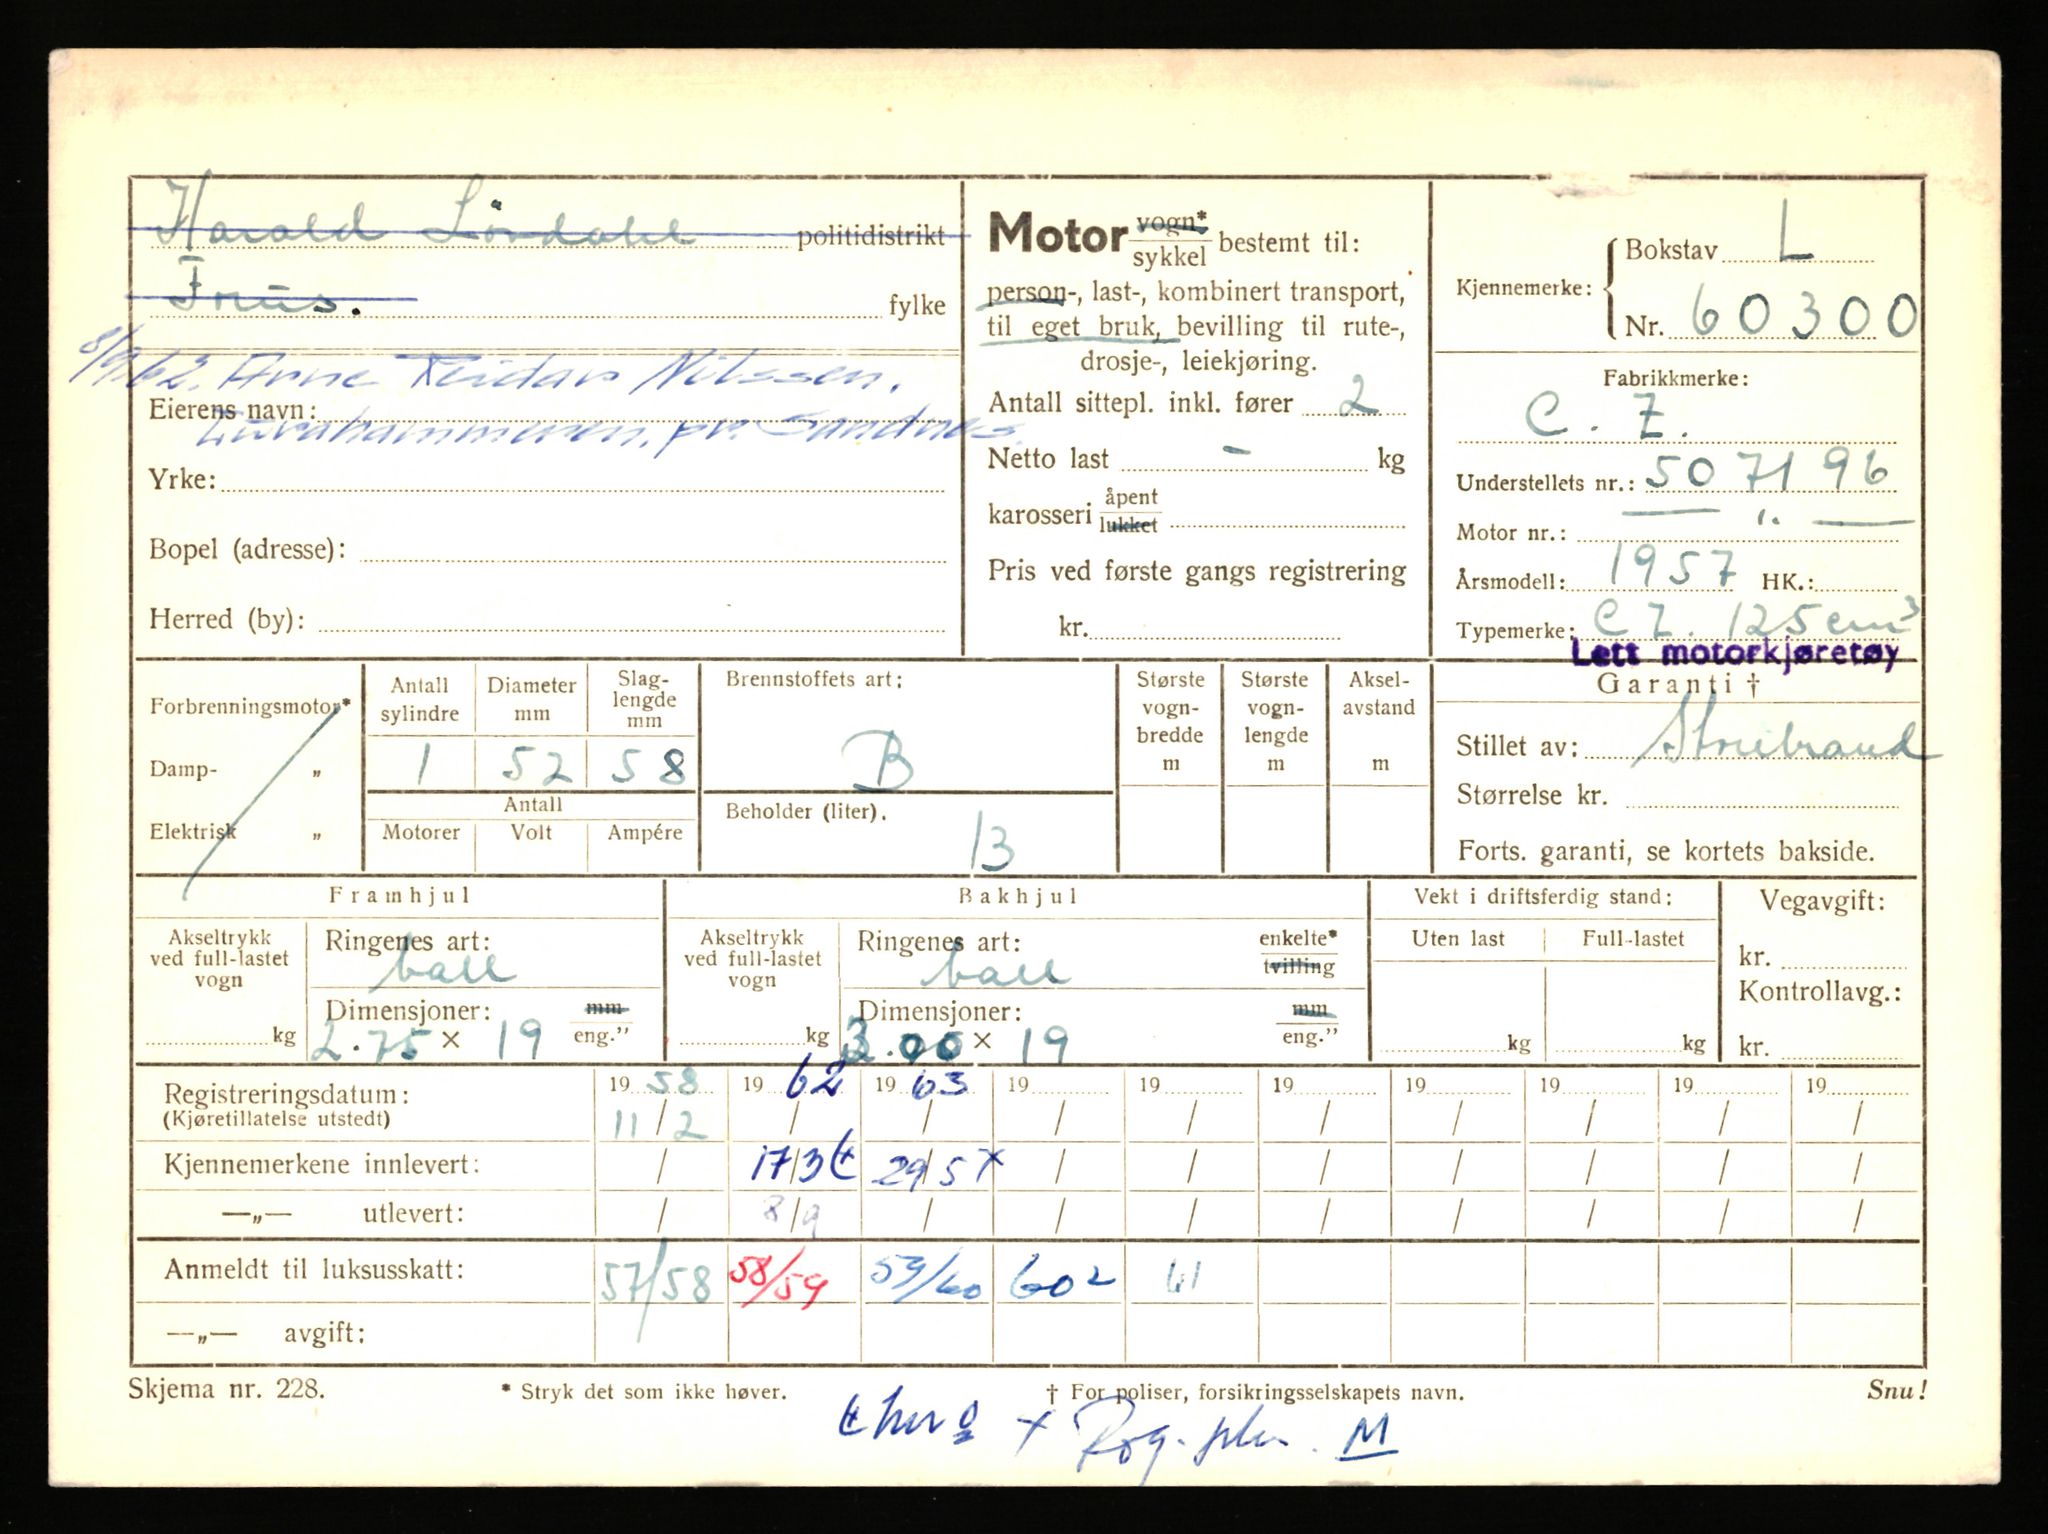 Harald Lördahl politidistrikt
Frues. fylke
8/9 62. Arne Reidar Nilssen.
Eierens navn:
Lurahammeren, pr. Sandnes.
Yrke:
Bopel (adresse):
Herred (by):
Motor vogn* sykkel bestemt til:
person-, last-, kombinert transport,
til eget bruk, bevilling til rute-,
drosje-, leiekjøring.
Antall sittepl. inkl. fører 2
Netto last - kg
karosseri åpent lukket
Pris ved første gangs registrering
kr.
Kjennemerke: Bokstav L
Nr. 60300
Fabrikkmerke:
C. Z.
Understellets nr.: 507196
Motor nr.: — " —
Årsmodell: 1957 HK.:
Typemerke: C Z. 125 cm³
Lett motorkjøretøy
Garanti †
Stillet av: Storebrand
Størrelse kr.
Forts. garanti, se kortets bakside.
Forbrenningsmotor*
Damp- "
Elektrisk "
Antall sylindre Diameter mm Slag-lengde mm
1 52 58
Antall
Motorer Volt Ampére
Brennstoffets art:
B
Beholder (liter).
13
Største vogn-bredde m Største vogn-lengde m Aksel-avstand m
Framhjul
Akseltrykk ved full-lastet vogn kg
Ringenes art:
ball
Dimensjoner: mm
2.75 x 19 eng."
Bakhjul
Akseltrykk ved full-lastet vogn kg
Ringenes art: enkelte*
ball tvilling
Dimensjoner: mm
3.00 x 19 eng."
Vekt i driftsferdig stand:
Uten last Full-lastet
kg kg
Vegavgift:
kr.
Kontrollavg.:
kr.
Registreringsdatum: 19 58 19 62 19 63 19 19 19 19 19 19 19
(Kjøretillatelse utstedt) 11/2 / / / / / / / / /
Kjennemerkene innlevert: / 17/3 29/5 x / / / / / / /
—„— utlevert: / 8/9 / / / / / / / /
Anmeldt til luksusskatt: 57/58 58/59 59/60 60² 61
—„— avgift:
Skjema nr. 228. * Stryk det som ikke høver. † For poliser, forsikringsselskapets navn. Snu!
x Rog. M